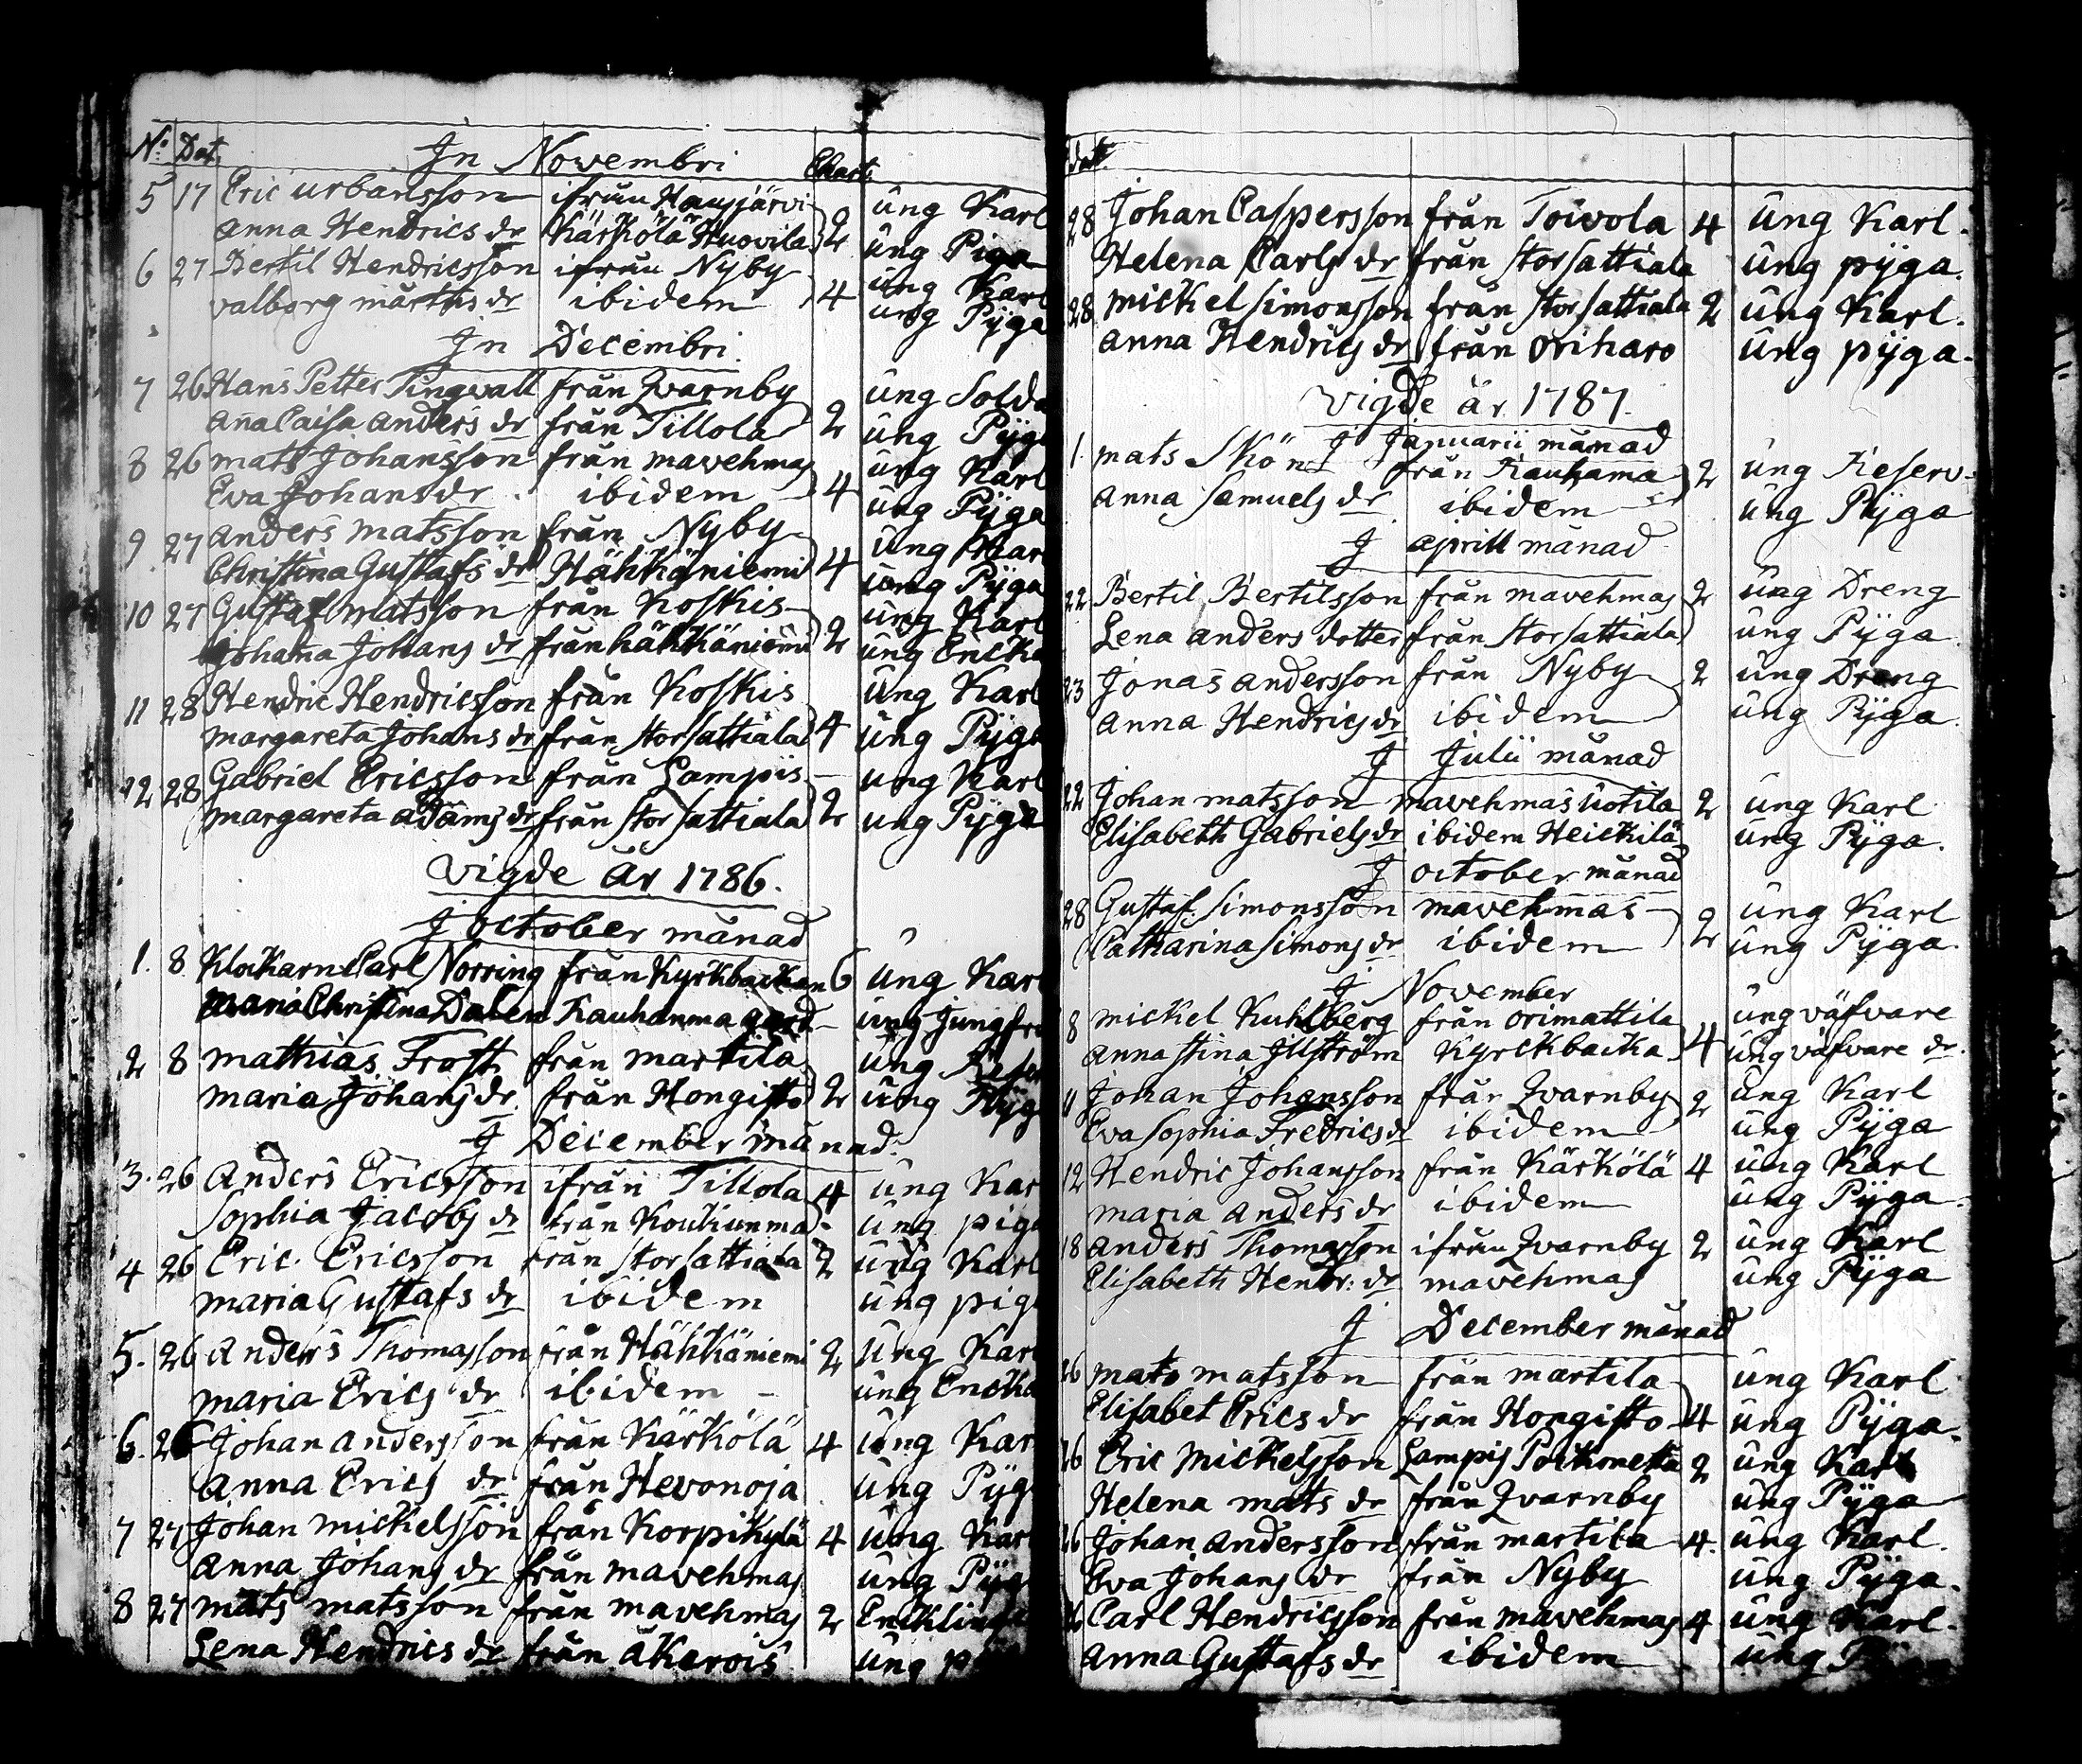 No Dat. In Novembri Chart.
5 17 Eric urbansson ifrån Hausjärvi ung Karl
anna Hendrics dr Kärkölä Huovila 2 ung Piga
6 27 Bertil Hendricsson ifrån Nyby ung Karl
valborg mårtens dr ibidem 4 ung Pÿga
In Decembri
7 26 Hans Petter Tingvall från Qvarnby ung Solda
ana Caisa anders dr från Tillola 2 ung Pÿga
8 26 mats Johansson från mavehmas ung Karl
Eva Johans dr ibidem 4 ung Pÿga
9 27 anders matsson från Nyby ung Karl
Christina Gustafs dr Hähkäniemi 4 ung Pÿga
10 27 Gustaf matsson från Koskis ung Karl
Johanna Johans dr från hähkäniemi 2 ung Encka
11 28 Hendric Hendricsson från Koskis ung Karl
margareta Johans dr från Storsattiala 4 ung Pÿga
12 28 Gabriel Ericsson från Lampis ung Karl
margareta adams dr från Storsattiala 2 ung Pÿga
vigde år 1786.
J october månad
1. 8 Klockarn Carl Norring från Kyrkbackan 6 ung Karl
maria Christina Dalen Kauhanma gård ung Jungfru
2 8 mathias Frost från martila ung Reser
maria Johans dr. från Hongisto 2 ung Pÿg
J December månad.
3. 26 Anders Ericsson ifrån Tillola 4 ung Kar
Sophia Jacobs dr från Koukunma ung piga
4 26 Eric Ericsson från Storsattiala 2 ung Karl
maria Gustafs dr ibidem ung pig
5. 26 Anders Thomasson från Hähkäniemi 2 ung Karl
maria Erics dr ibidem ung Encka
6. 26 Johan andersson från Kärkölä 4 ung Kar
anna Erics dr från Hevonoja ung Pÿg
7 27 Johan mickelsson från Korpikylä 4 ung Kar
anna Johans dr från mavehmas ung Pÿg
8 27 mats matsson från mavehmas 2 Encklin
Lena Hendrics dr från åkerois ung p
dat.
28 Johan Caspersson från Toivola 4 ung Karl.
Helena Carls dr från Storsattiala ung pÿga.
28 mickel simonsson från Storsattiala 2 ung Karl.
anna Hendrics dr från oriharo ung pÿga.
vigde år 1787.
J Januarii månad
1. mats Skön från Kauhama 2 ung Reserv.
anna Samuels dr ibidem ung Pÿga
J aprill månad
22 Bertil Bertilsson från mavehmas 2 ung Dreng
Lena anders dotter från Storsattiala ung Pÿga
23 Jonas andersson från Nyby 2 ung Dreng
anna Hendrics dr ibidem ung Pÿga.
J Julii månad
22 Johan matsson mavehmas uotila 2 ung Karl
Elisabeth Gabriels dr ibidem Heickilä ung Pÿga.
J october månad
28 Gustaf simonsson mavehmas ung Karl
Catharina simons dr ibidem 2 ung Pÿga.
J November
8 mickel Kuhlberg från orimattila ung väfvare
anna Stina Jllström Kyrckbacka 4 ung väfvare dr.
11 Johan Johansson från Qvarnby 2 ung Karl
Eva Sophia Fredrics dr ibidem ung Pÿga
12 Hendric Johansson från Kärkölä 4 ung Karl
maria anders dr ibidem ung Pÿga.
18 anders Thomasson ifrån Qvarnby 2 ung Karl
Elisabeth Hendr: dr mavehmas ung Pÿga
J December månad
26 mats matsson från martila ung Karl
Elisabet Erics dr från Hongisto 4 ung Pÿga.
26 Eric mickelsson Lampis Poikmetsa 2 ung Karl
Helena mats dr från Qvarnby ung Pÿga
26 Johan andersson från martila 4. ung Karl.
Eva Johans dr från Nyby ung Pÿga.
26 Carl Hendricsson från mavehmas 4 ung Karl.
anna Gustafs dr ibidem ung